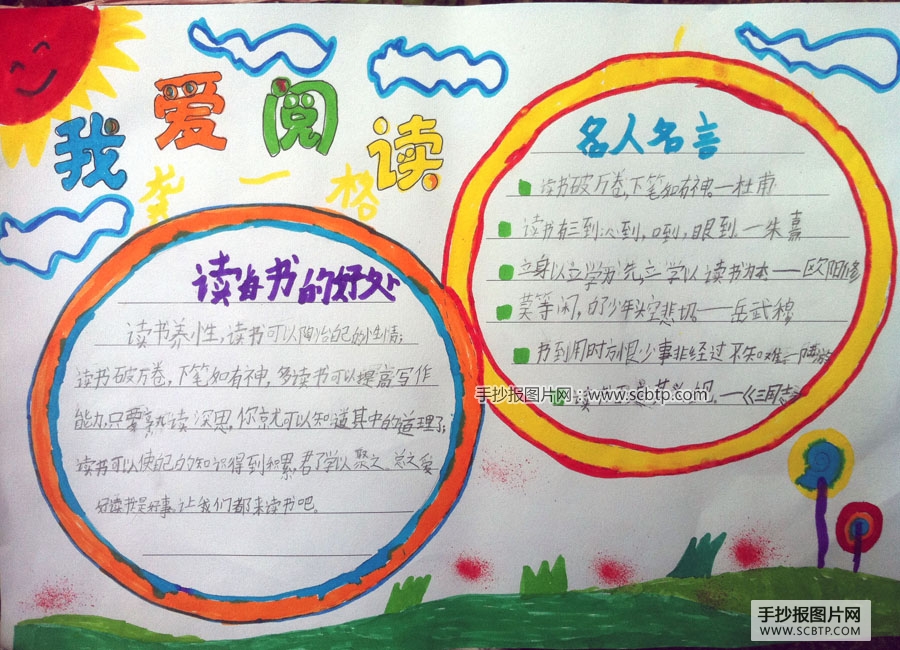 我爱阅读
龚一格
读书的好处
读书养性,读书可以陶冶自己的性情;
读书破万卷,下笔如有神,多读书可以提高写作
能力,只要熟读深思,你就可以知道其中的道理了;
读书可以使自己的知识得到积累,君子学以聚之、总之爱
好读书是好事、让我们都来读书吧。
名人名言
读书破万卷,下笔如有神。—杜甫
读书有三到:心到,口到,眼到。—朱熹
立身以立学为先,立学以读书为本——欧阳修
莫等闲,白了少年头空悲切——岳武穆
书到用时方恨少事非经过不知难—陆游
读书百遍其义 。—《三国志》
手抄报图片网:www.scbtp.com
手抄报图片网
WWW.SCBTP.COM